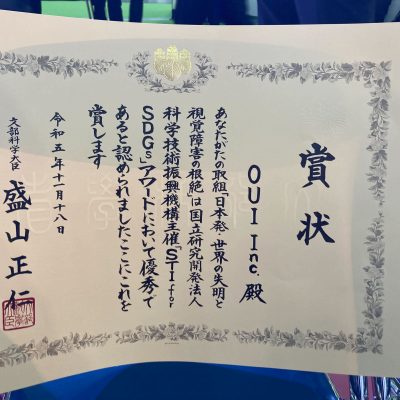 賞状
OUI Inc. 殿
あなたがたの取組「日本発 世界の失明と
視覚障害の根絶」は国立研究開発法人
科学技術振興機構主催「STI for
SDGs」アワードにおいて優秀で
あると認められましたここにこれを
賞します
令和五年十一月十八日
文部科学大臣 盛山正仁